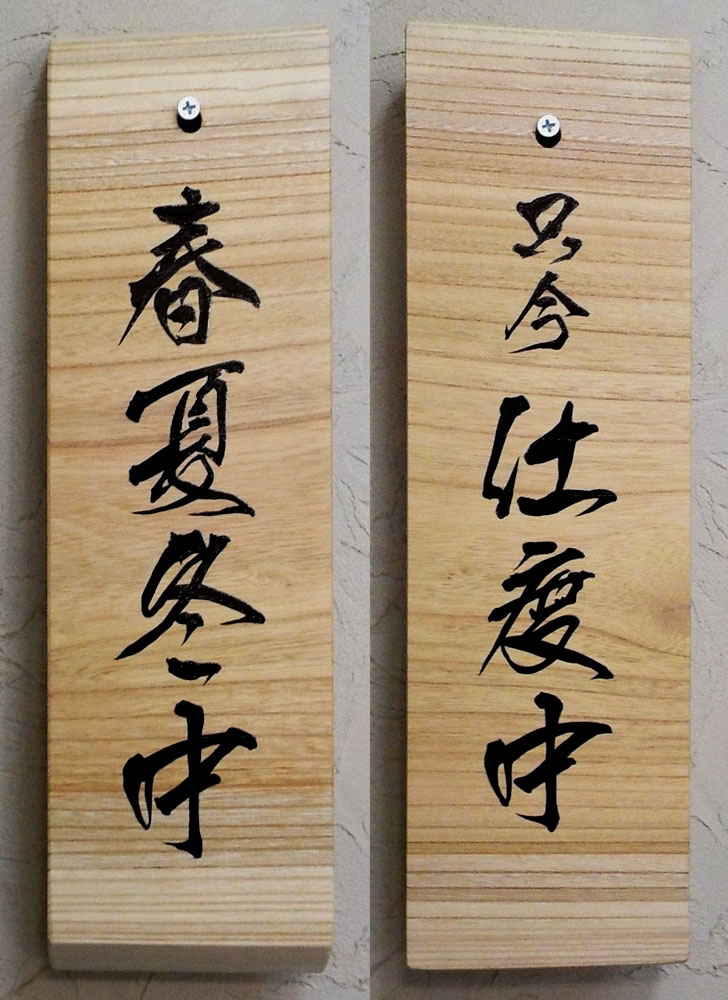 春夏冬中
只今仕度中